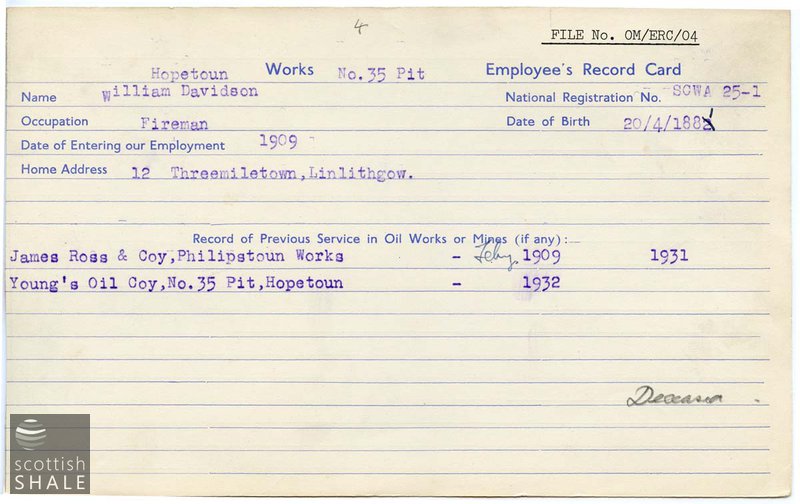 4
FILE No. OM/ERC/04
Hopetoun Works No.35 Pit Employee's Record Card
Name William Davidson National Registration No. SCWA 25-1
Occupation Fireman Date of Birth 20/4/1881
Date of Entering our Employment 1909
Home Address 12 Threemiletown,Linlithgow.
Record of Previous Service in Oil Works or Mines (if any):—
James Ross & Coy,Philipstoun Works - Feby. 1909 1931
Young's Oil Coy,No.35 Pit,Hopetoun - 1932
Deceased
scottish
SHALE